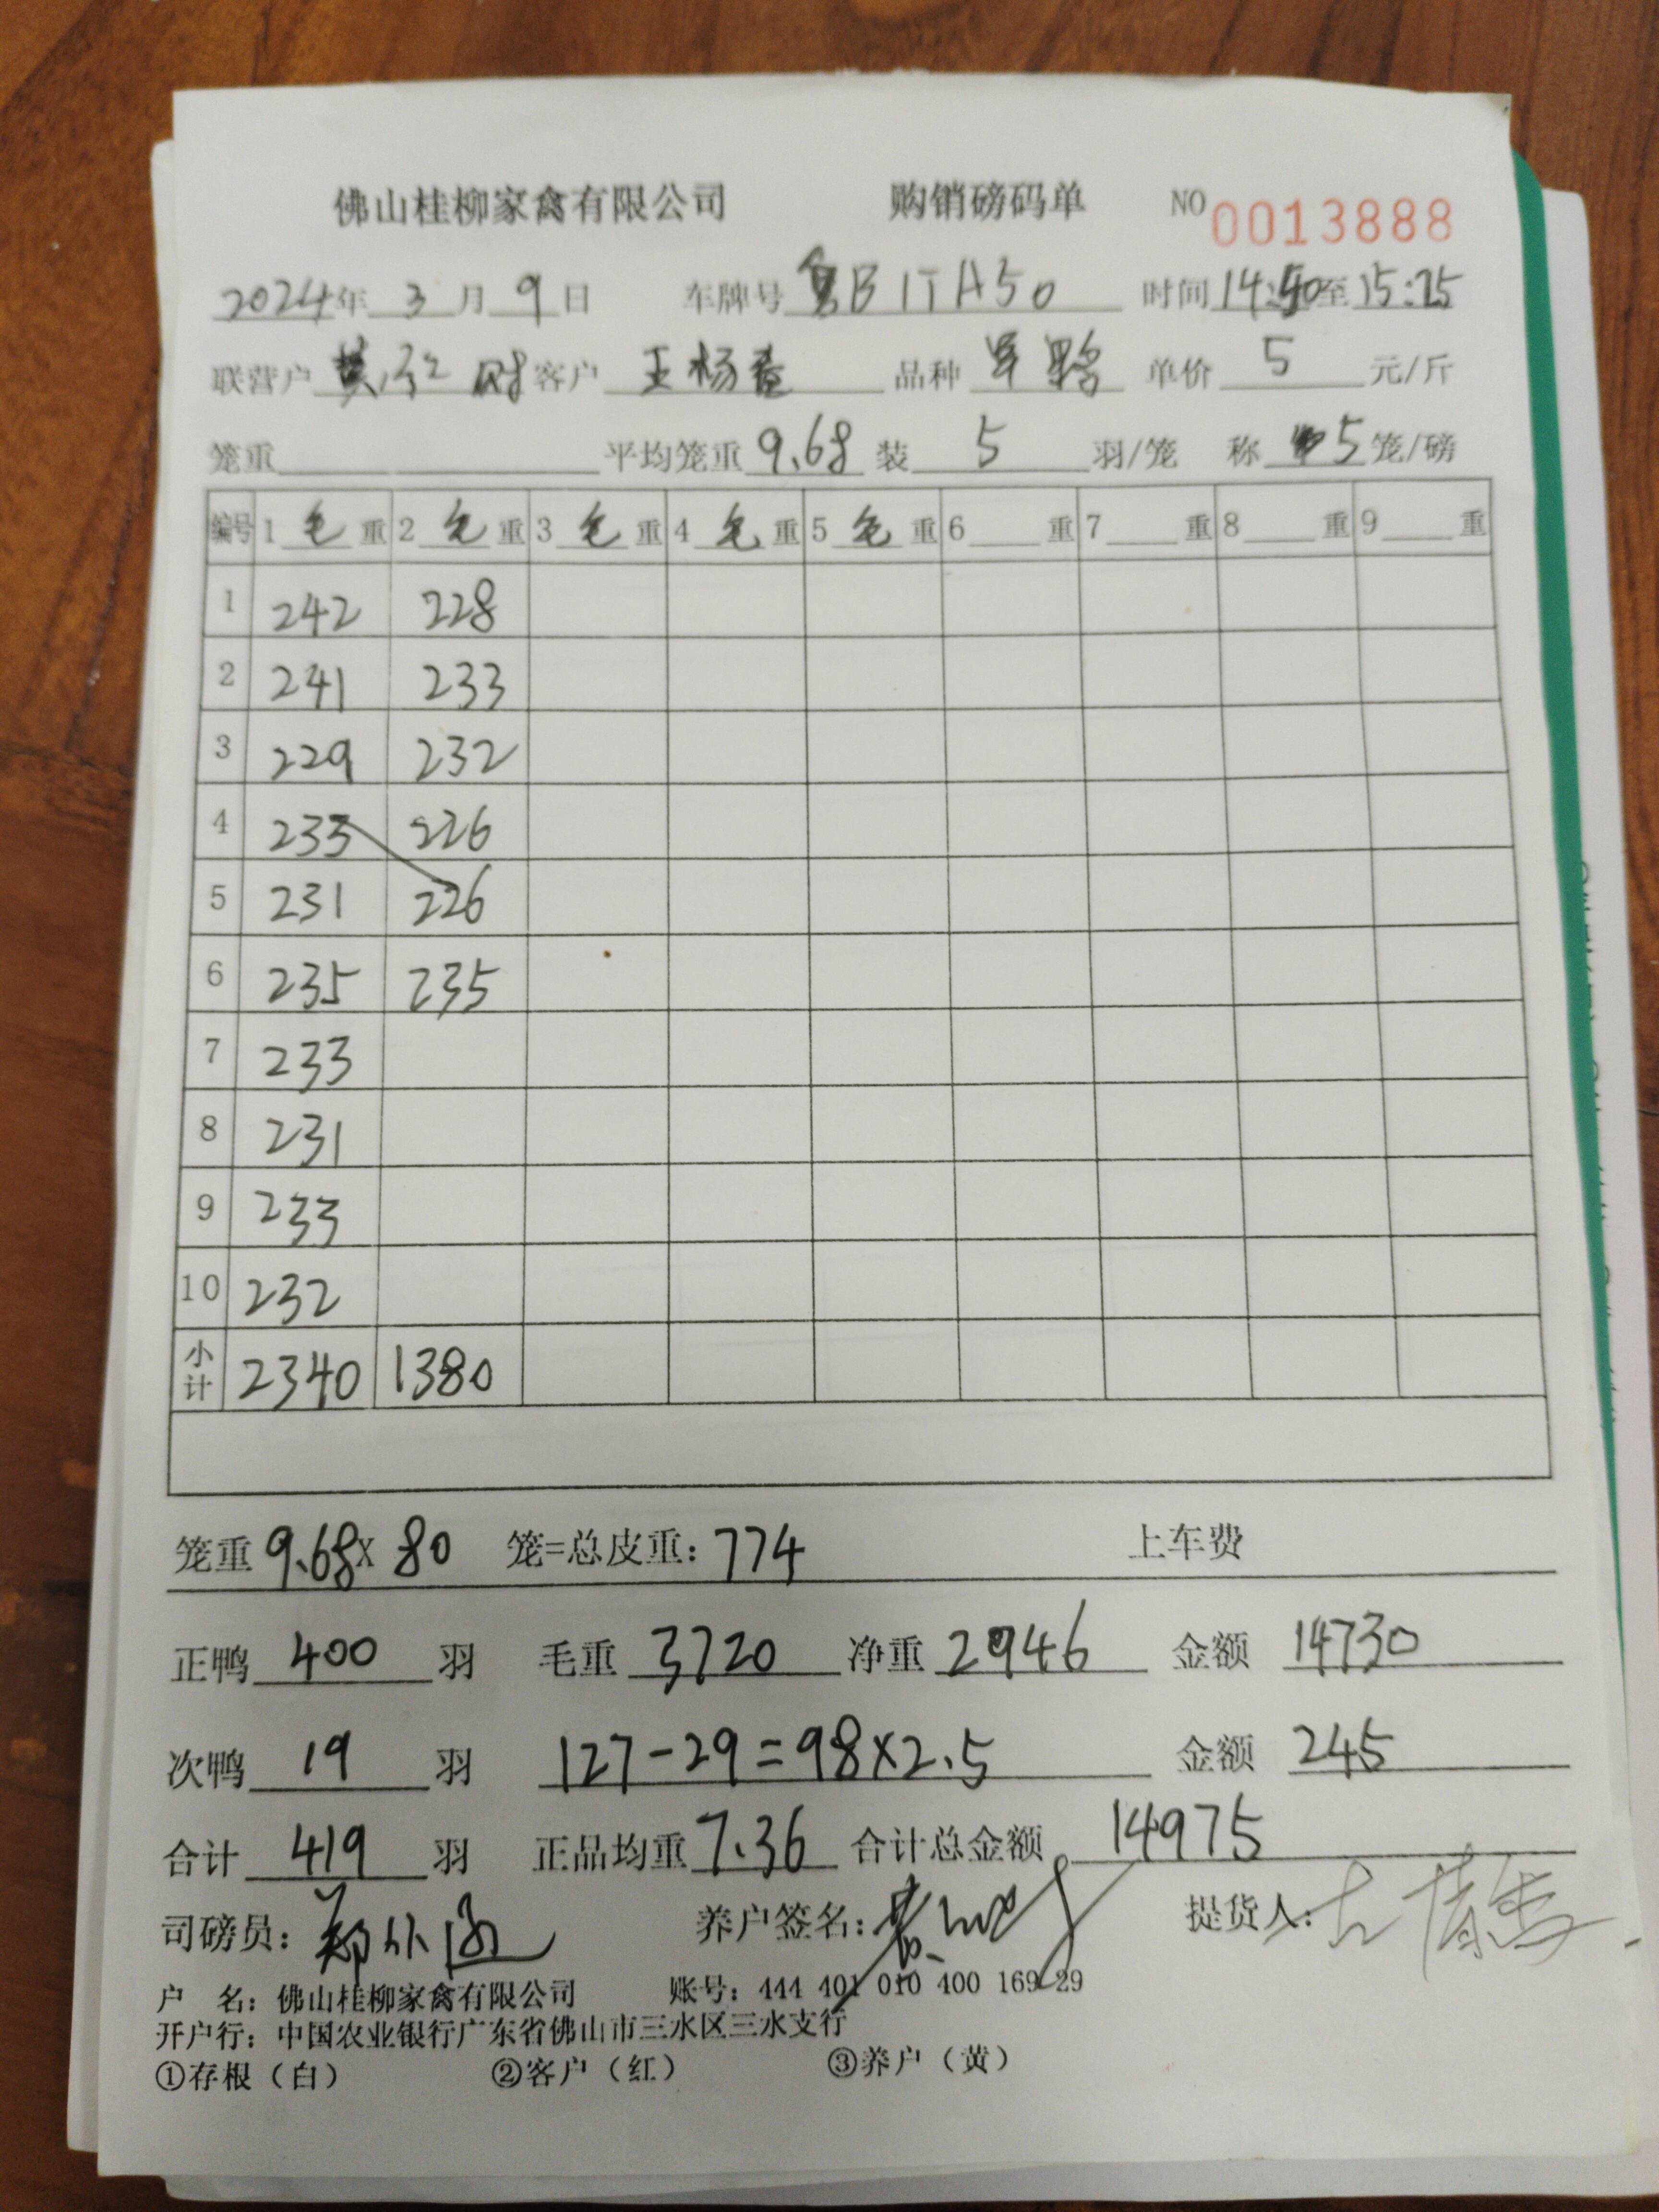 佛山桂柳家禽有限公司 购销磅码单 NO 0013888
2024年 3 月 9 日 车牌号 粤B1TA50 时间 14:50 至 15:25
联营户 客户 王杨 品种 单价 5 元/斤
笼重 平均笼重 9.68 装 5 羽/笼 称 5 笼/磅
编号 1 毛 重 2 毛 重 3 毛 重 4 毛 重 5 毛 重 6 重 7 重 8 重 9 重
1 242 228
2 241 233
3 229 232
4 233 226
5 231 226
6 235 235
7 233
8 231
9 233
10 232
小计 2340 1380
笼重 9.68 x 80 笼=总皮重: 774 上车费
正鸭 400 羽 毛重 3720 净重 2946 金额 14730
次鸭 19 羽 127-29=98×2.5 金额 245
合计 419 羽 正品均重 7.36 合计总金额 14975
司磅员: 养户签名: 提货人:
户 名: 佛山桂柳家禽有限公司 账号: 444 401 010 400 169 29
开户行: 中国农业银行广东省佛山市三水区三水支行
①存根(白) ②客户(红) ③养户(黄)